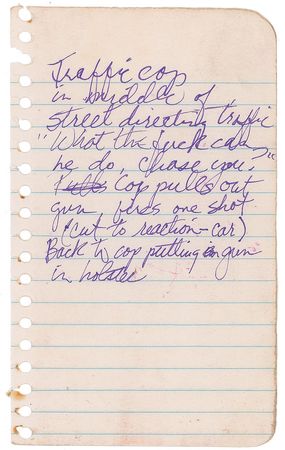 Traffic cop
in middle of
street directing traffic
"What the fuck can
he do, chase you?"
Pulls Cop pulls out
gun fires one shot
(cut to reaction-car)
Back to cop putting gun
in holster